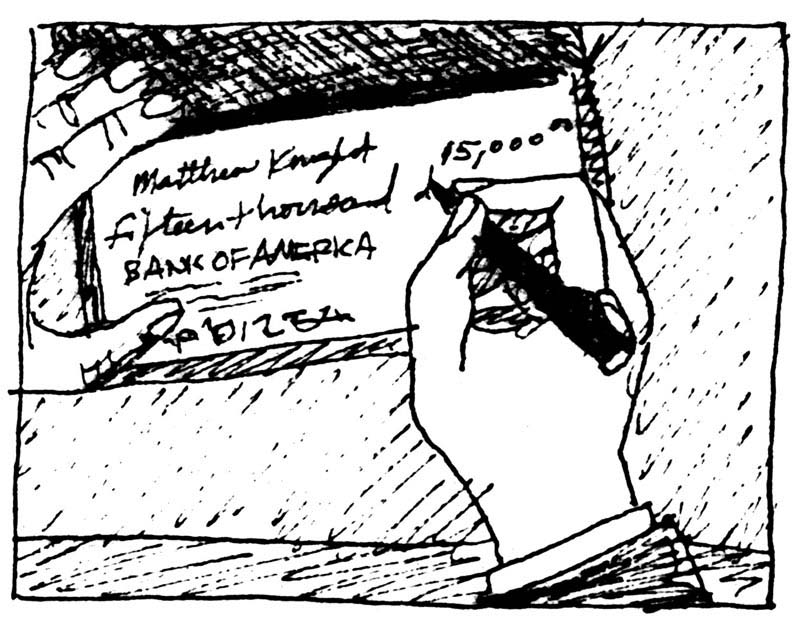 Matthew Knight 15,000⁰⁰
fifteen thousand
BANK OF AMERICA